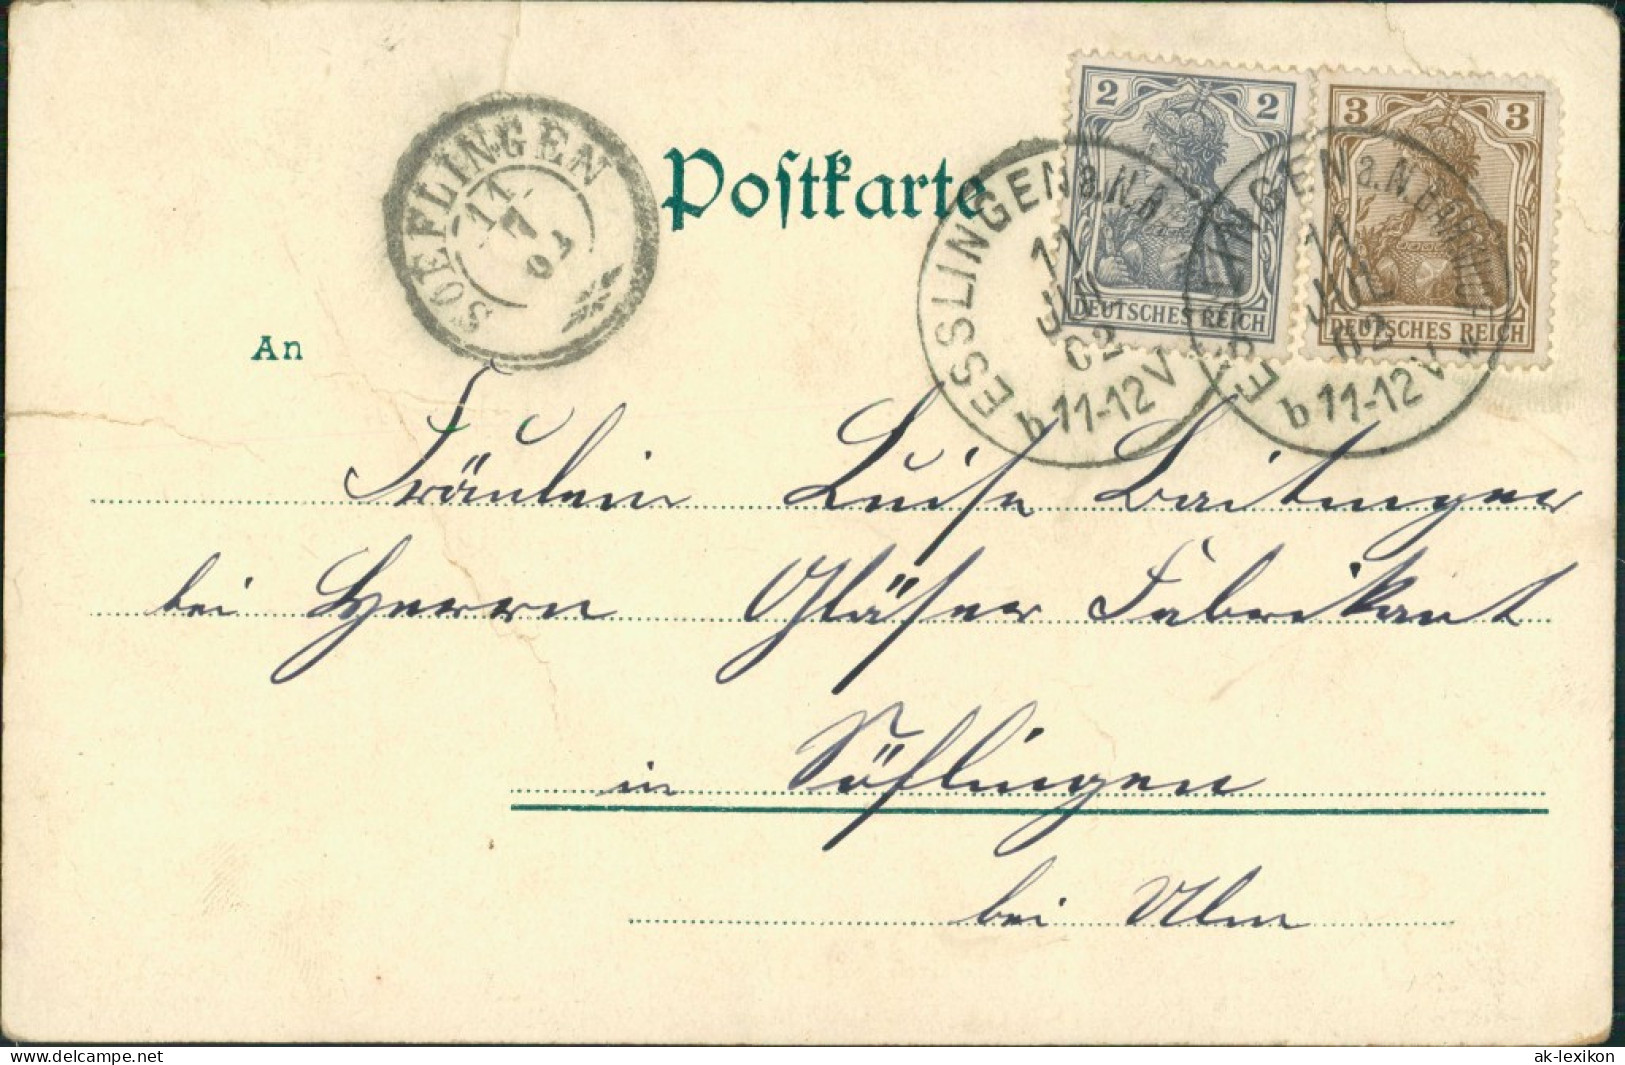 SOEFLINGEN
11
7
02
Postkarte
2 2
DEUTSCHES REICH
3 3
DEUTSCHES REICH
ESSLINGEN a.N.
11
JUL
02
b 11-12 V
a.N. BAHNHOF
11
JUL
02
b 11-12 V
An
Fräulein Luise Baitinger
bei Herrn Gläser Fabrikant
in Söflingen
bei Ulm
www.delcampe.net
ak-lexikon